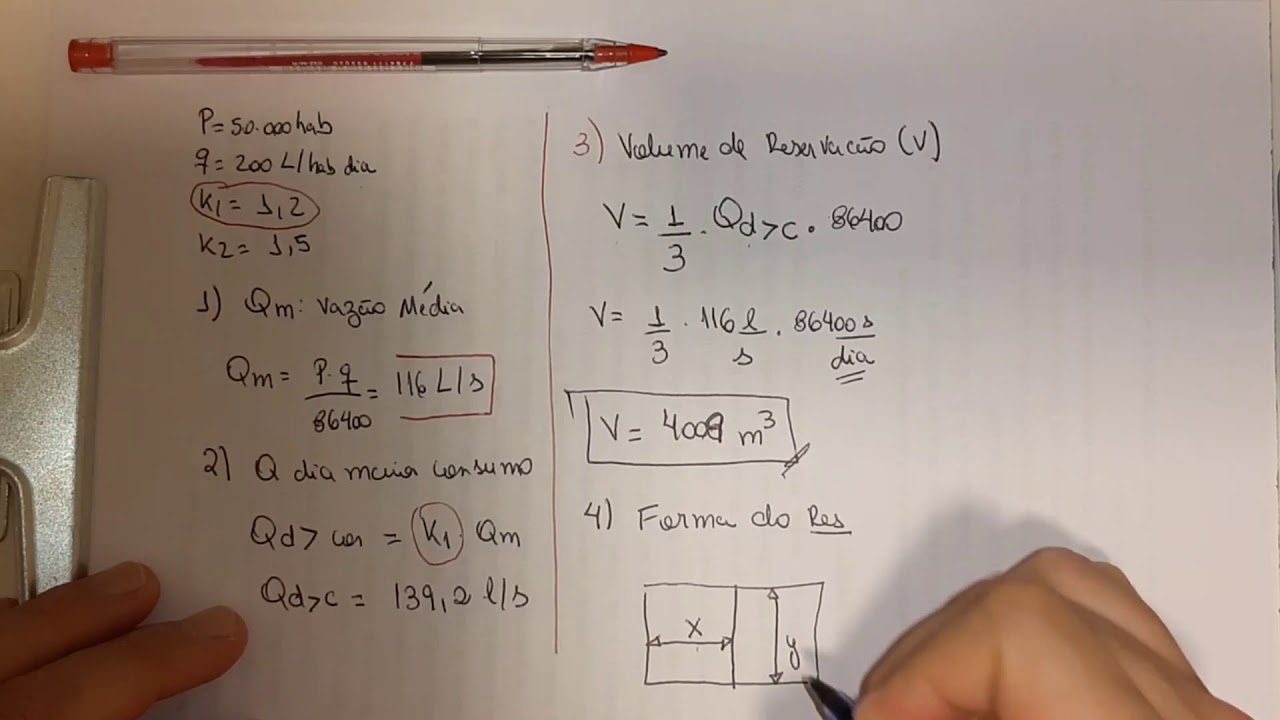 P=50.000hab
q=200 L/hab dia
K1=1,2
K2=1,5
1) Qm: Vazão Média
Qm= P.q/86400 = 116 L/s
2) Q dia maior consumo
Qd> con = K1. Qm
Qd>c = 139,2 l/s
3) Volume de Reservação (V)
V= 1/3 . Qd>c . 86400
V= 1/3 . 116 l/s . 86400 s/dia
V= 4009 m³
4) Forma do Res
x
y